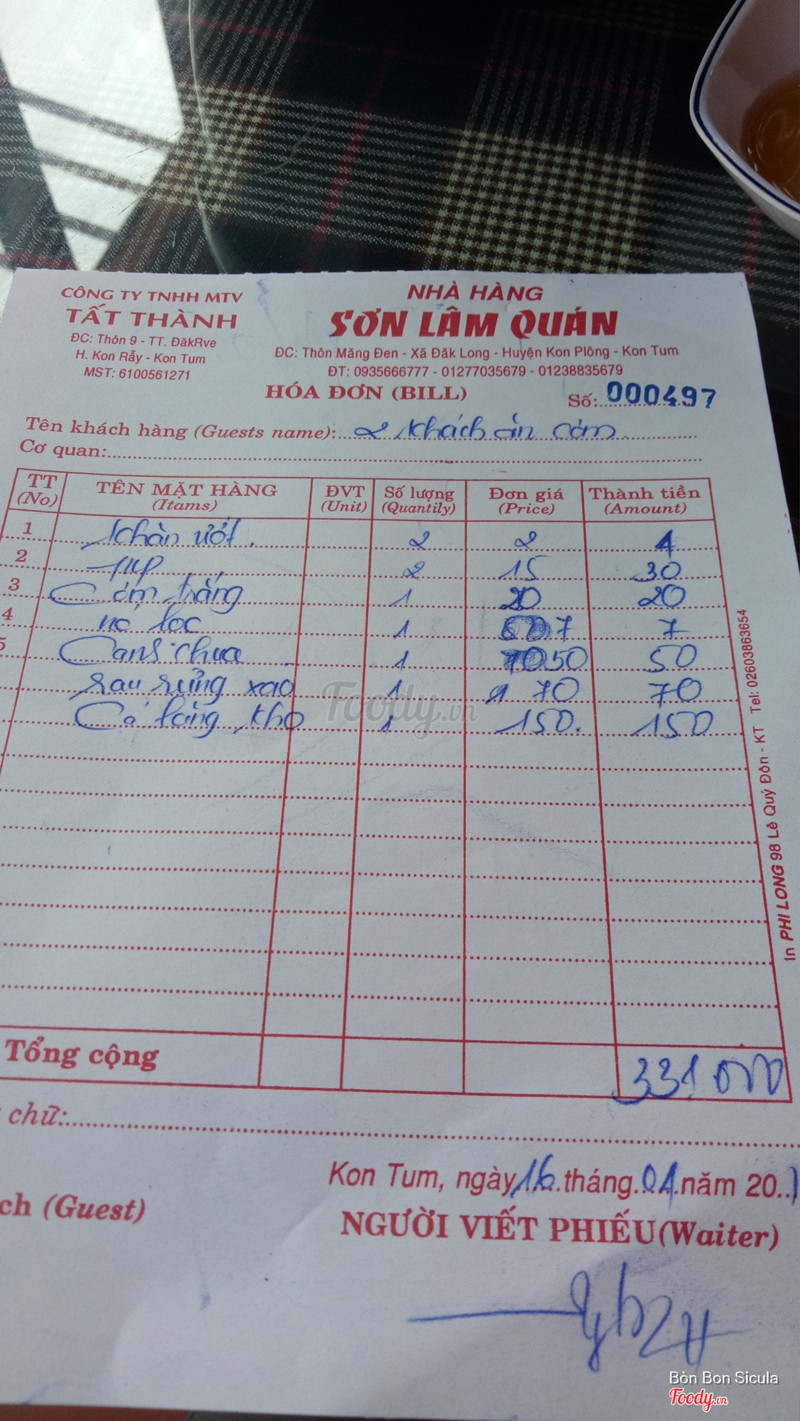 CÔNG TY TNHH MTV
TẤT THÀNH
ĐC: Thôn 9 - TT. ĐăkRve
H. Kon Rẫy - Kon Tum
MST: 6100561271
NHÀ HÀNG
SƠN LÂM QUÁN
ĐC: Thôn Măng Đen - Xã Đăk Long - Huyện Kon Plông - Kon Tum
ĐT: 0935666777 - 01277035679 - 01238835679
HÓA ĐƠN (BILL)
Số: 000497
Tên khách hàng (Guests name): 2 khách ăn cơm
Cơ quan:
TT (No) TÊN MẶT HÀNG (Itams) ĐVT (Unit) Số lượng (Quantily) Đơn giá (Price) Thành tiền (Amount)
1 khăn ướt. 2 2 4
2 2 15 30
3 Cơm trắng 1 20 20
4 nc lọc 1 7 7
5 Canh chua 1 50 50
rau rừng xào 1 70 70
Cá tầng kho 1 150. 150
Tổng cộng 331 000
chữ:
Kon Tum, ngày 16 tháng 01 năm 20..1
ch (Guest)
NGƯỜI VIẾT PHIẾU(Waiter)
In PHI LONG 98 Lê Quý Đôn - KT Tel: 02603863654
Foody.vn
Bòn Bon Sicula
Foody.vn